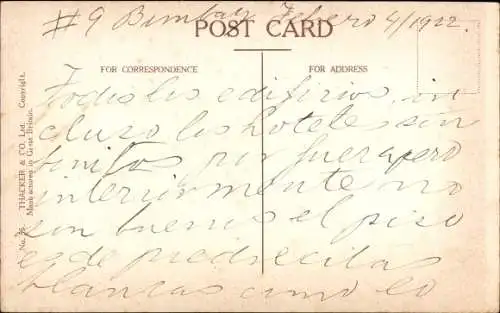 #9 Bombay Febero 4/1922.
POST CARD
FOR CORRESPONDENCE
FOR ADDRESS
Todos los edificios, in
cluso los hoteles son
bonitos por fuera pero
interiormente no
son buenos el piso
es de piedrecitas
blancas como lo
No. 36. THACKER & CO. Ltd. Copyright.
Manufactured in Great Britain.